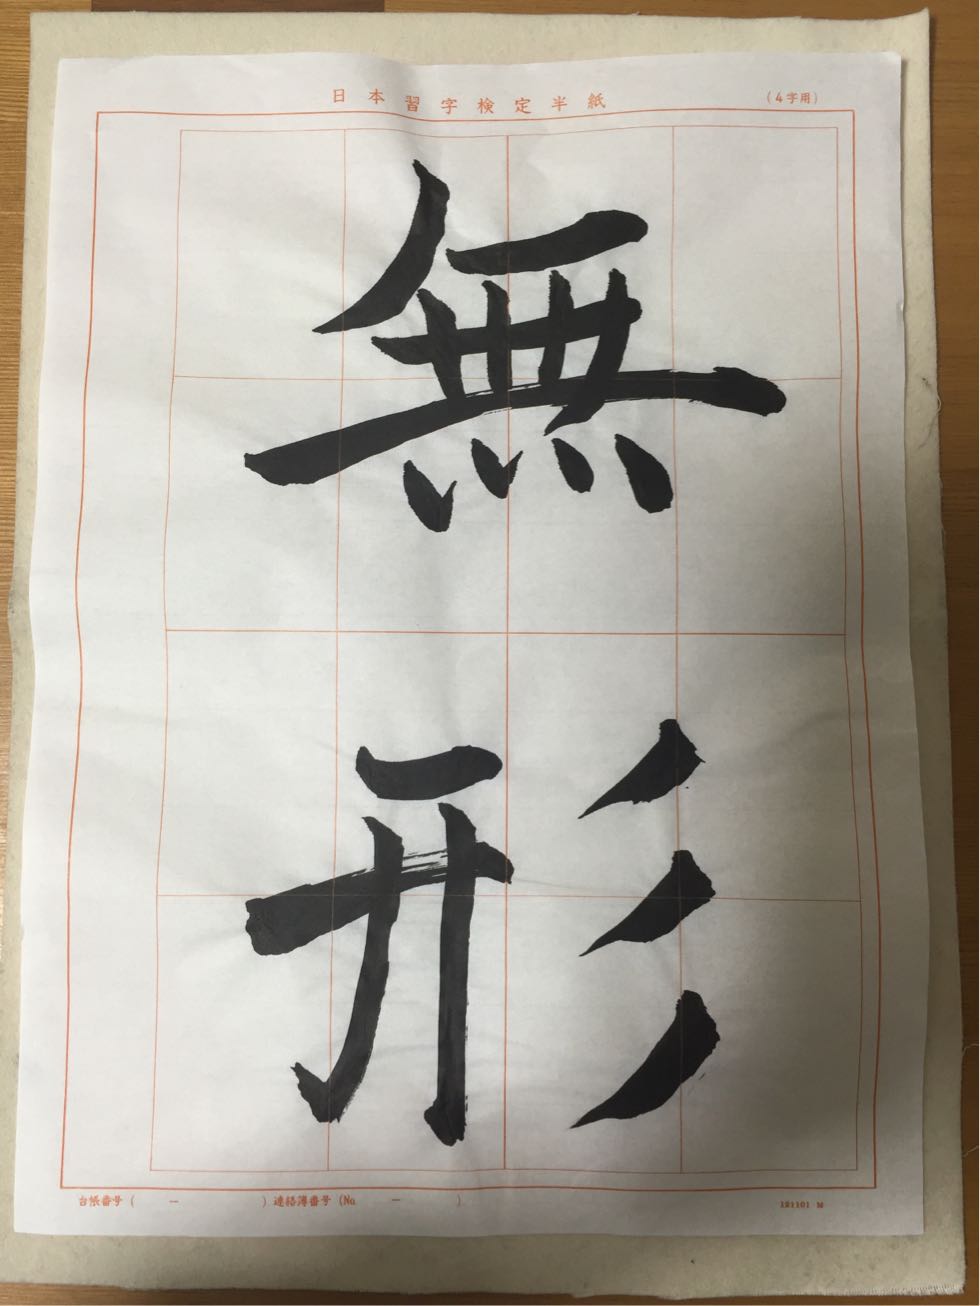 日本習字検定半紙 （4字用）
無
形
台帳番号（ － ）連絡簿番号（No. － ） 121101 M